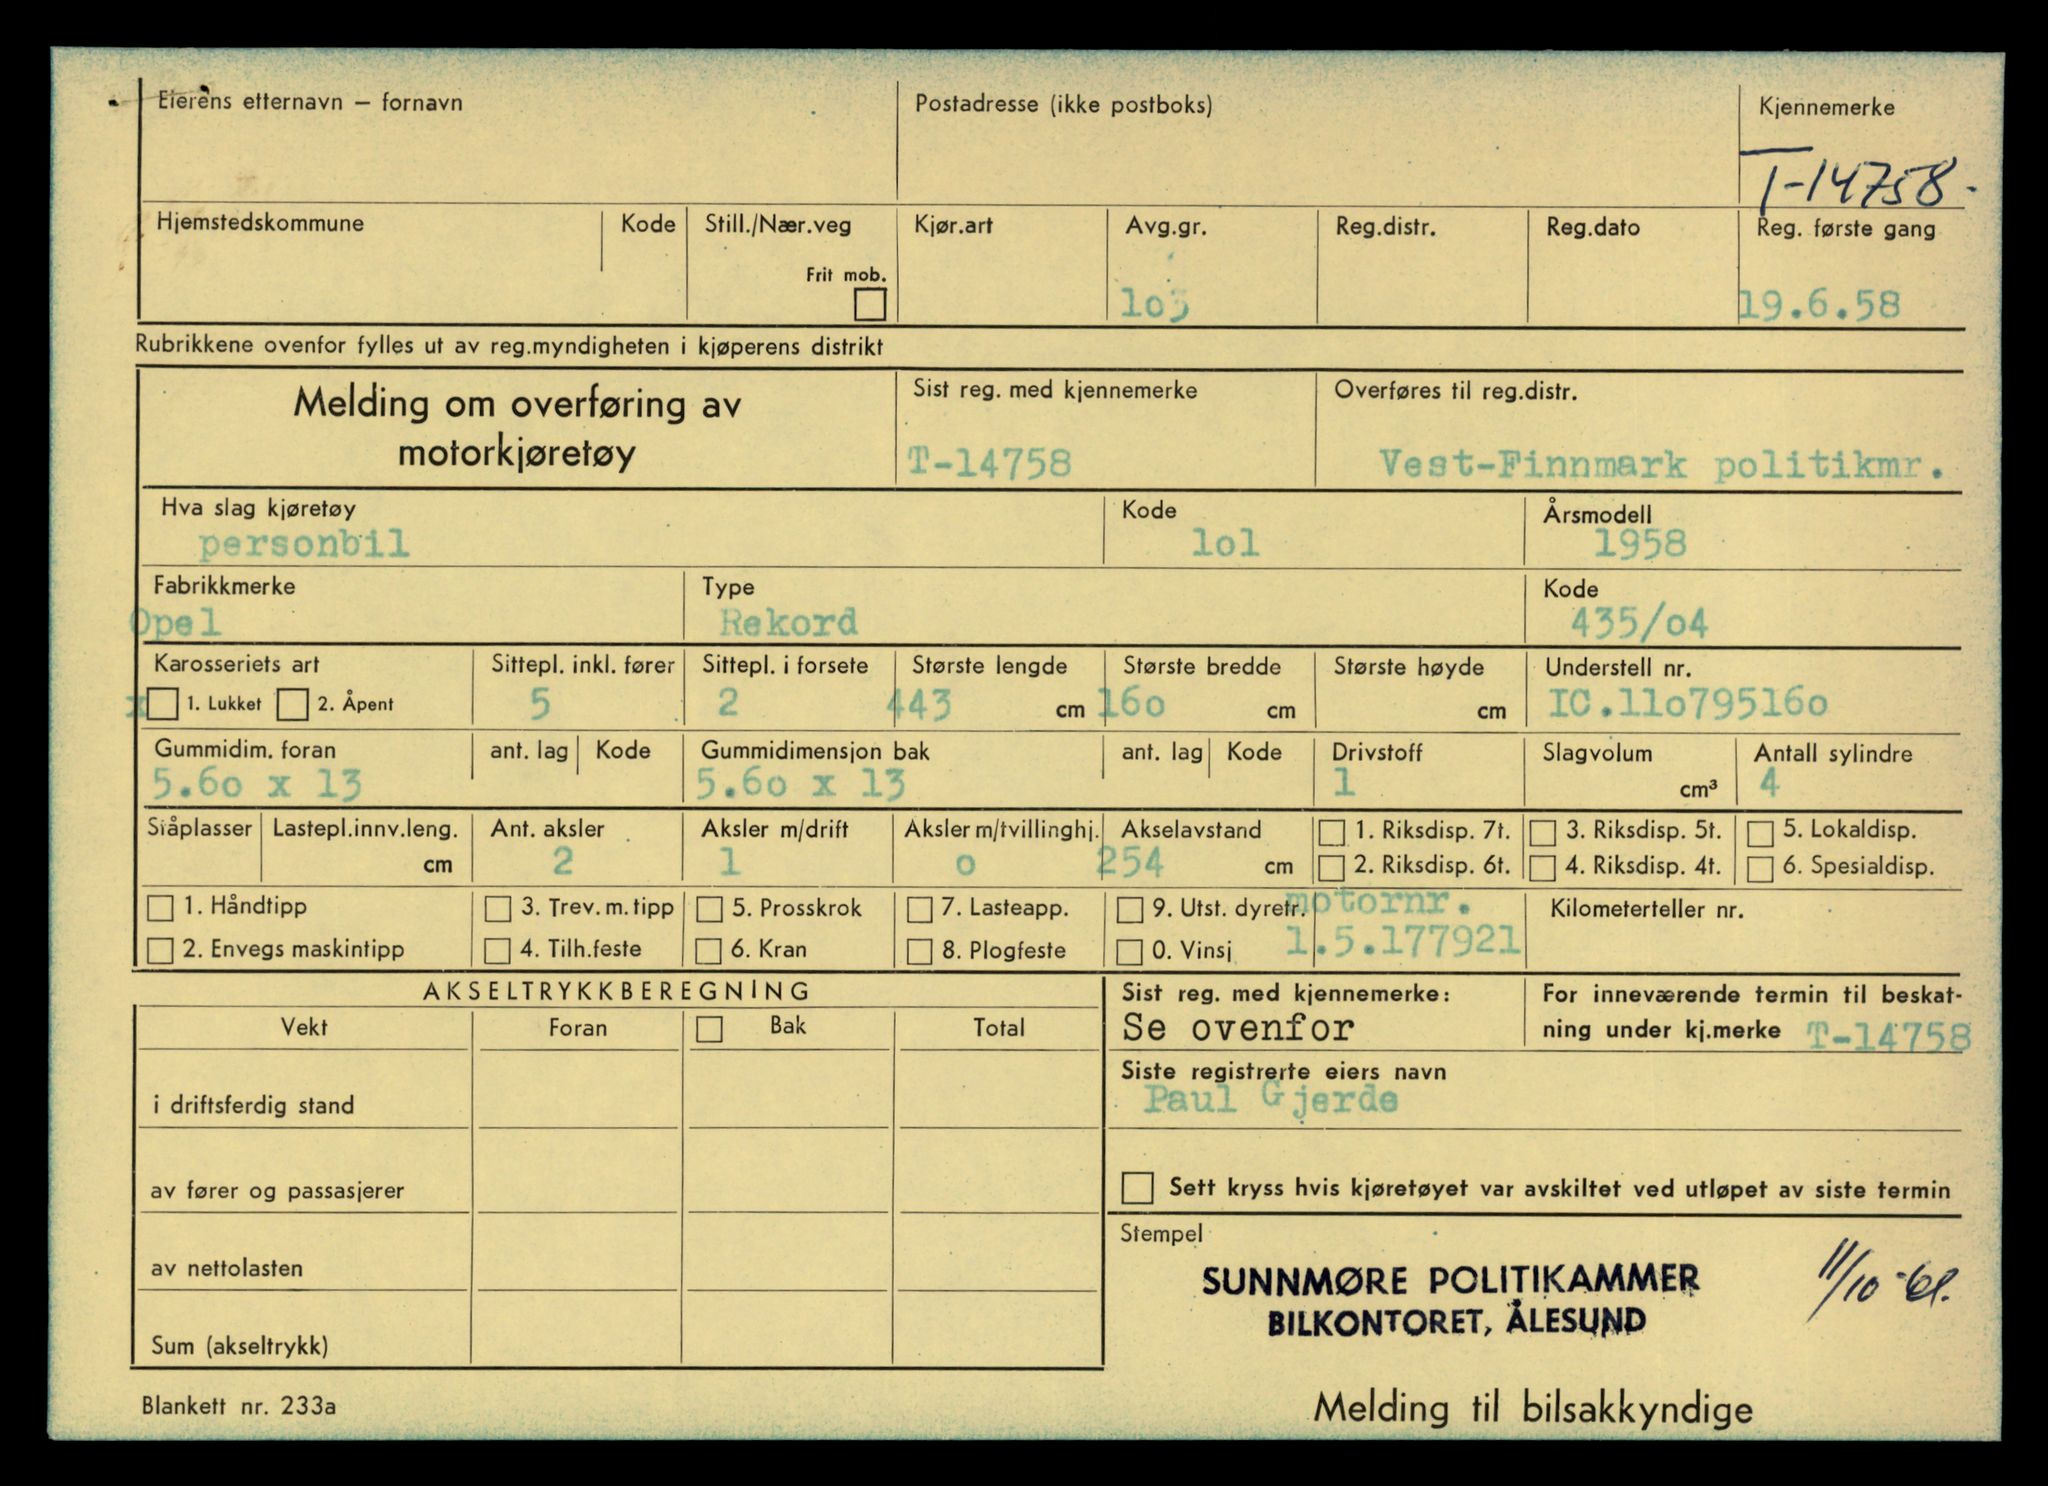 Eierens etternavn – fornavn
Postadresse (ikke postboks)
Kjennemerke
T-14758.
Hjemstedskommune
Kode
Still./Nær.veg
Frit mob.
Kjør.art
Avg.gr.
lo3
Reg.distr.
Reg.dato
Reg. første gang
19.6.58
Rubrikkene ovenfor fylles ut av reg.myndigheten i kjøperens distrikt
Melding om overføring av
motorkjøretøy
Sist reg. med kjennemerke
T-14758
Overføres til reg.distr.
Vest-Finnmark politikmr.
Hva slag kjøretøy
personbil
Kode
lol
Årsmodell
1958
Fabrikkmerke
Opel
Type
Rekord
Kode
435/o4
Karosseriets art
x 1. Lukket 2. Åpent
Sittepl. inkl. fører
5
Sittepl. i forsete
2
Største lengde
443 cm
Største bredde
16o cm
Største høyde
cm
Understell nr.
IC.llo79516o
Gummidim. foran
5.6o x 13
ant. lag
Kode
Gummidimensjon bak
5.6o x 13
ant. lag
Kode
Drivstoff
1
Slagvolum
cm³
Antall sylindre
4
Ståplasser
Lastepl.innv.leng.
cm
Ant. aksler
2
Aksler m/drift
1
Aksler m/tvillinghj.
o
Akselavstand
254 cm
1. Riksdisp. 7t.
2. Riksdisp. 6t.
3. Riksdisp. 5t.
4. Riksdisp. 4t.
5. Lokaldisp.
6. Spesialdisp.
1. Håndtipp
2. Envegs maskintipp
3. Trev. m. tipp
4. Tilh.feste
5. Prosskrok
6. Kran
7. Lasteapp.
8. Plogfeste
9. Utst. dyretr.
0. Vinsj
motornr.
1.5.177921
Kilometerteller nr.
AKSELTRYKKBEREGNING
Vekt
Foran
Bak
Total
i driftsferdig stand
av fører og passasjerer
av nettolasten
Sum (akseltrykk)
Sist reg. med kjennemerke:
Se ovenfor
For inneværende termin til beskat-
ning under kj.merke T-14758
Siste registrerte eiers navn
Paul Gjerde
Sett kryss hvis kjøretøyet var avskiltet ved utløpet av siste termin
Stempel
SUNNMØRE POLITIKAMMER
BILKONTORET, ÅLESUND
11/10-61.
Blankett nr. 233a
Melding til bilsakkyndige